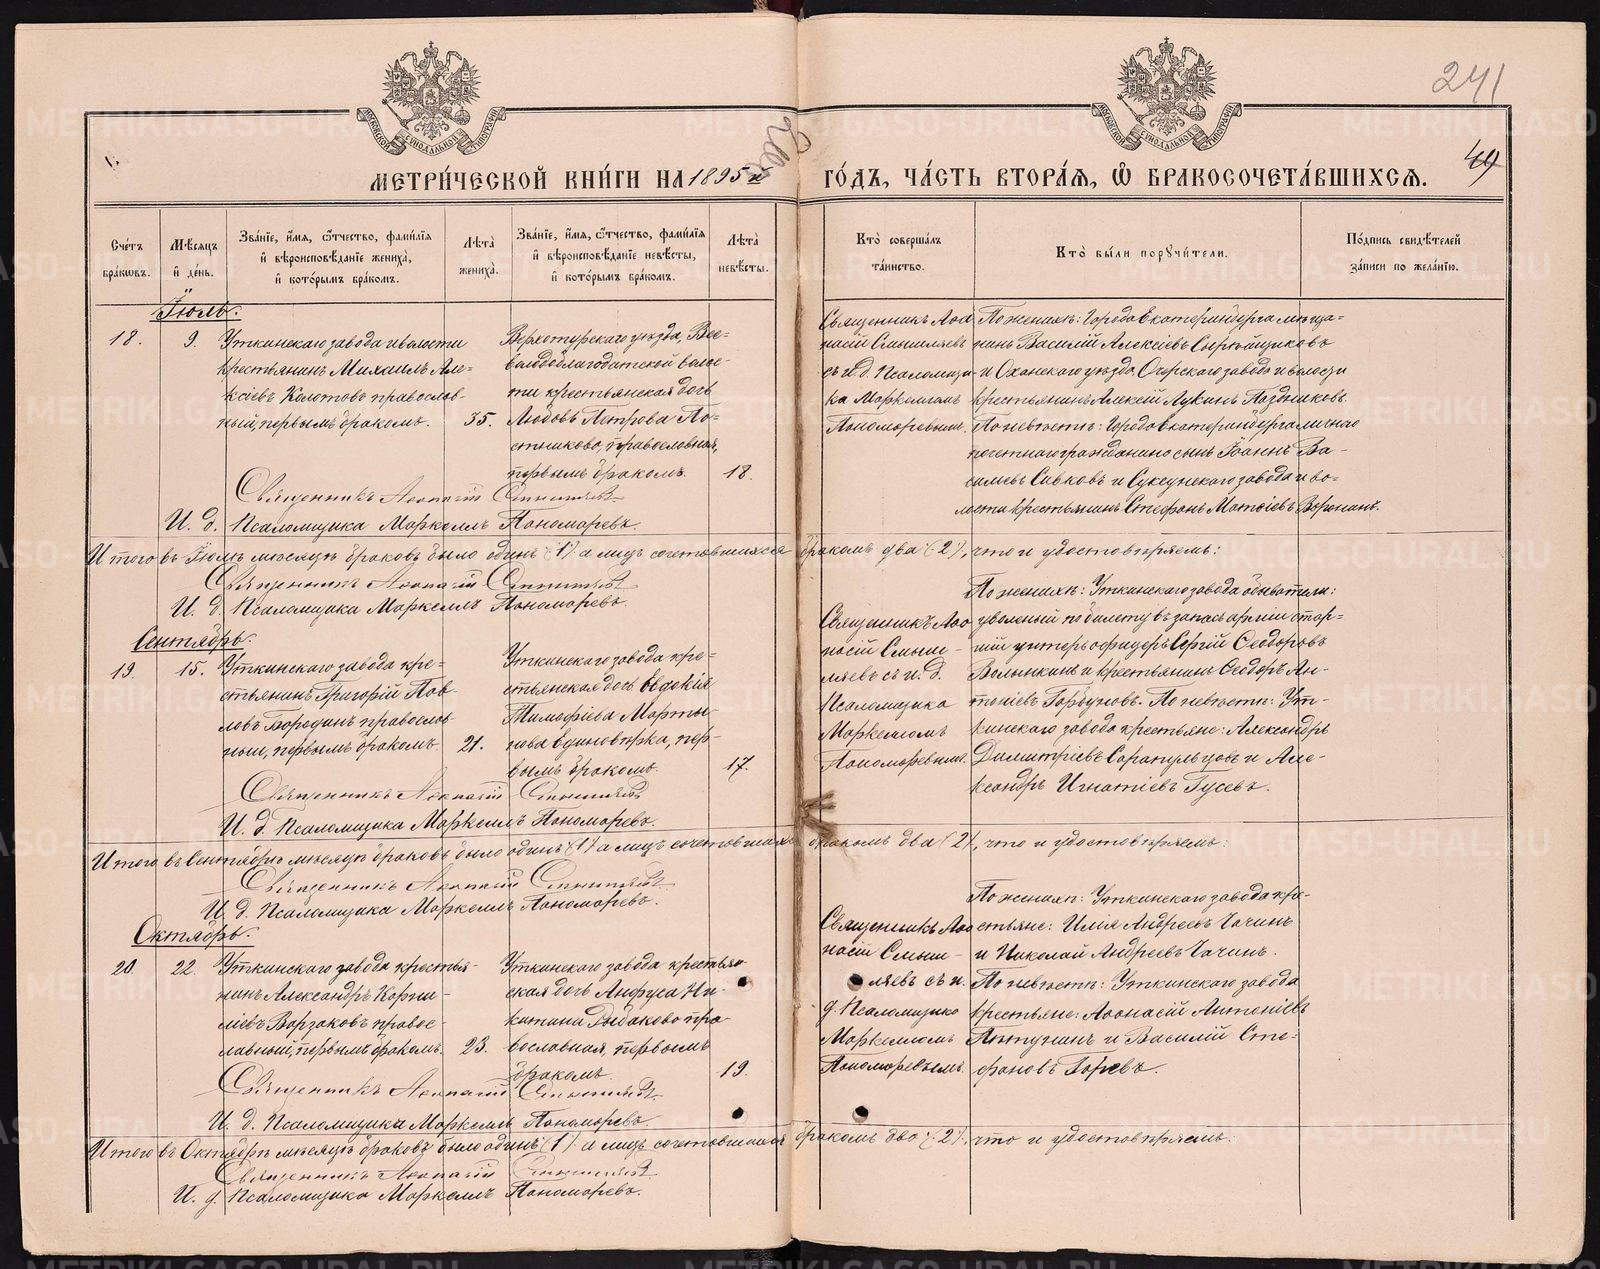 241
49
МЕТРИ́ЧЕСКОЙ КНИ́ГИ НА 1895й ГО́ДЪ, ЧА́СТЬ ВТОРА́Я, Ѽ БРАКОСОЧЕТА́ВШИХСЯ.
Сче́тъ бра́ковъ.
Мѣ́сяцъ и҆ де́нь.
Зва́нїе, и҆́мя, ѻ҆́тчество, фами́лїя и҆ вѣроисповѣ́данїе жениха̀, и҆ кото́рымъ бра́комъ.
Лѣ́та жениха̀.
Зва́нїе, и҆́мя, ѻ҆́тчество, фами́лїя и҆ вѣроисповѣ́данїе невѣ́сты, и҆ кото́рымъ бра́комъ.
Лѣ́та невѣ́сты.
Кто̀ соверша́лъ та́инство.
Кто̀ бы́ли порꙋчи́тели.
По́дпись свидѣ́телей за́писи по жела́нїю.
Іюль.
18.
9.
Уткинскаго завода и волости
крестьянинъ Михаилъ Але-
ксіевъ Колотовъ православ-
ный, первымъ бракомъ.
35.
Верхотурскаго уѣзда, Все-
володоблагодатской волос-
ти крестьянская дочь
Любовь Петрова По-
стникова, православная,
первымъ бракомъ.
18.
Священникъ Аѳа
насій Смышляевъ
съ и. д. Псаломщи-
ка Маркелломъ
Пономаревымъ.
По женихѣ: Города Екатеринбурга мѣща-
нинъ Василій Алексіевъ Сыромщиковъ
и Оханскаго уѣзда Очерскаго завода и волости
крестьянинъ Алексій Лукинъ Поздниковъ.
По невѣстѣ: Города Екатеринбурга личнаго
почетнаго гражданина сынъ Іоаннъ Ва-
сильевъ Сивковъ и Суксунскаго завода и во-
лости крестьянинъ Стефанъ Матѳіевъ
Священникъ Аѳанасій Смышляевъ
И. д. Псаломщика Маркеллъ Пономаревъ.
Итого въ Іюлѣ мѣсяцѣ браковъ было одинъ (1) а лицъ сочетовшихся бракомъ два (2), что и удостовѣряемъ:
Священникъ Аѳанасій Смышляевъ
И. д. Псаломщика Маркеллъ Пономаревъ.
Сентябрь.
19.
15.
Уткинскаго завода кре-
стьянинъ Григорій Пав-
ловъ Бородинъ православ
ный, первымъ бракомъ.
21.
Уткинскаго завода кре-
стьянская дочь Евдокія
Тимофіева Марты-
нова единовѣрка, пер-
вымъ бракомъ.
17.
Священникъ Аѳа
насій Смыш-
ляевъ съ и. д.
Псаломщика
Маркелломъ
Пономаревымъ.
По женихѣ: Уткинскаго завода обыватели:
уволеный по билету въ запасъ арміи стар-
шій унтеръ офицеръ Сергій Ѳеодоровъ
Волынкинъ и крестьянинъ Ѳеодоръ Ан-
тоніевъ Горбуновъ. По невѣстѣ: Ут-
кинскаго завода крестьяне: Александръ
Димитріевъ Сарапульцовъ и Але-
ксандръ Игнатіевъ Гусевъ.
Священникъ Аѳанасій Смышляевъ
И. д. Псаломщика Маркеллъ Пономаревъ.
Итого въ Сентябрѣ мѣсяцѣ браковъ было одинъ (1) а лицъ сочетовшихся бракомъ два (2), что и удостовѣряемъ:
Священникъ Аѳанасій Смышляевъ
И. д. Псаломщика Маркеллъ Пономаревъ.
Октябрь.
20
22.
Уткинскаго завода крестья-
нинъ Александръ Корни-
ліевъ Варзаковъ правос-
лавный, первымъ бракомъ.
23.
Уткинскаго завода крестьян
ская дочь Анфуса Ни-
китина Рыбакова пра-
вославная, первымъ
бракомъ.
19.
Священникъ Аѳа
насій Смыш-
ляевъ съ и.
д. Псаломщика
Маркелломъ
Пономаревымъ.
По женихѣ: Уткинскаго завода кре-
стьяне: Илія Андреевъ Чачинъ
и Николай Андреевъ Чачинъ.
По невѣстѣ: Уткинскаго завода
крестьяне: Аѳонасій Антоніевъ
и Василій Сте-
фановъ Горевъ.
Священникъ Аѳанасій Смышляевъ
И. д. Псаломщика Маркеллъ Пономаревъ.
Итого въ Октябрѣ мѣсяцѣ браковъ было одинъ (1) а лицъ сочетовшихся бракомъ два (2), что и удостовѣряемъ:
Священникъ Аѳанасій Смышляевъ
И. д. Псаломщика Маркеллъ Пономаревъ.
METRIKI.GASO-URAL.RU